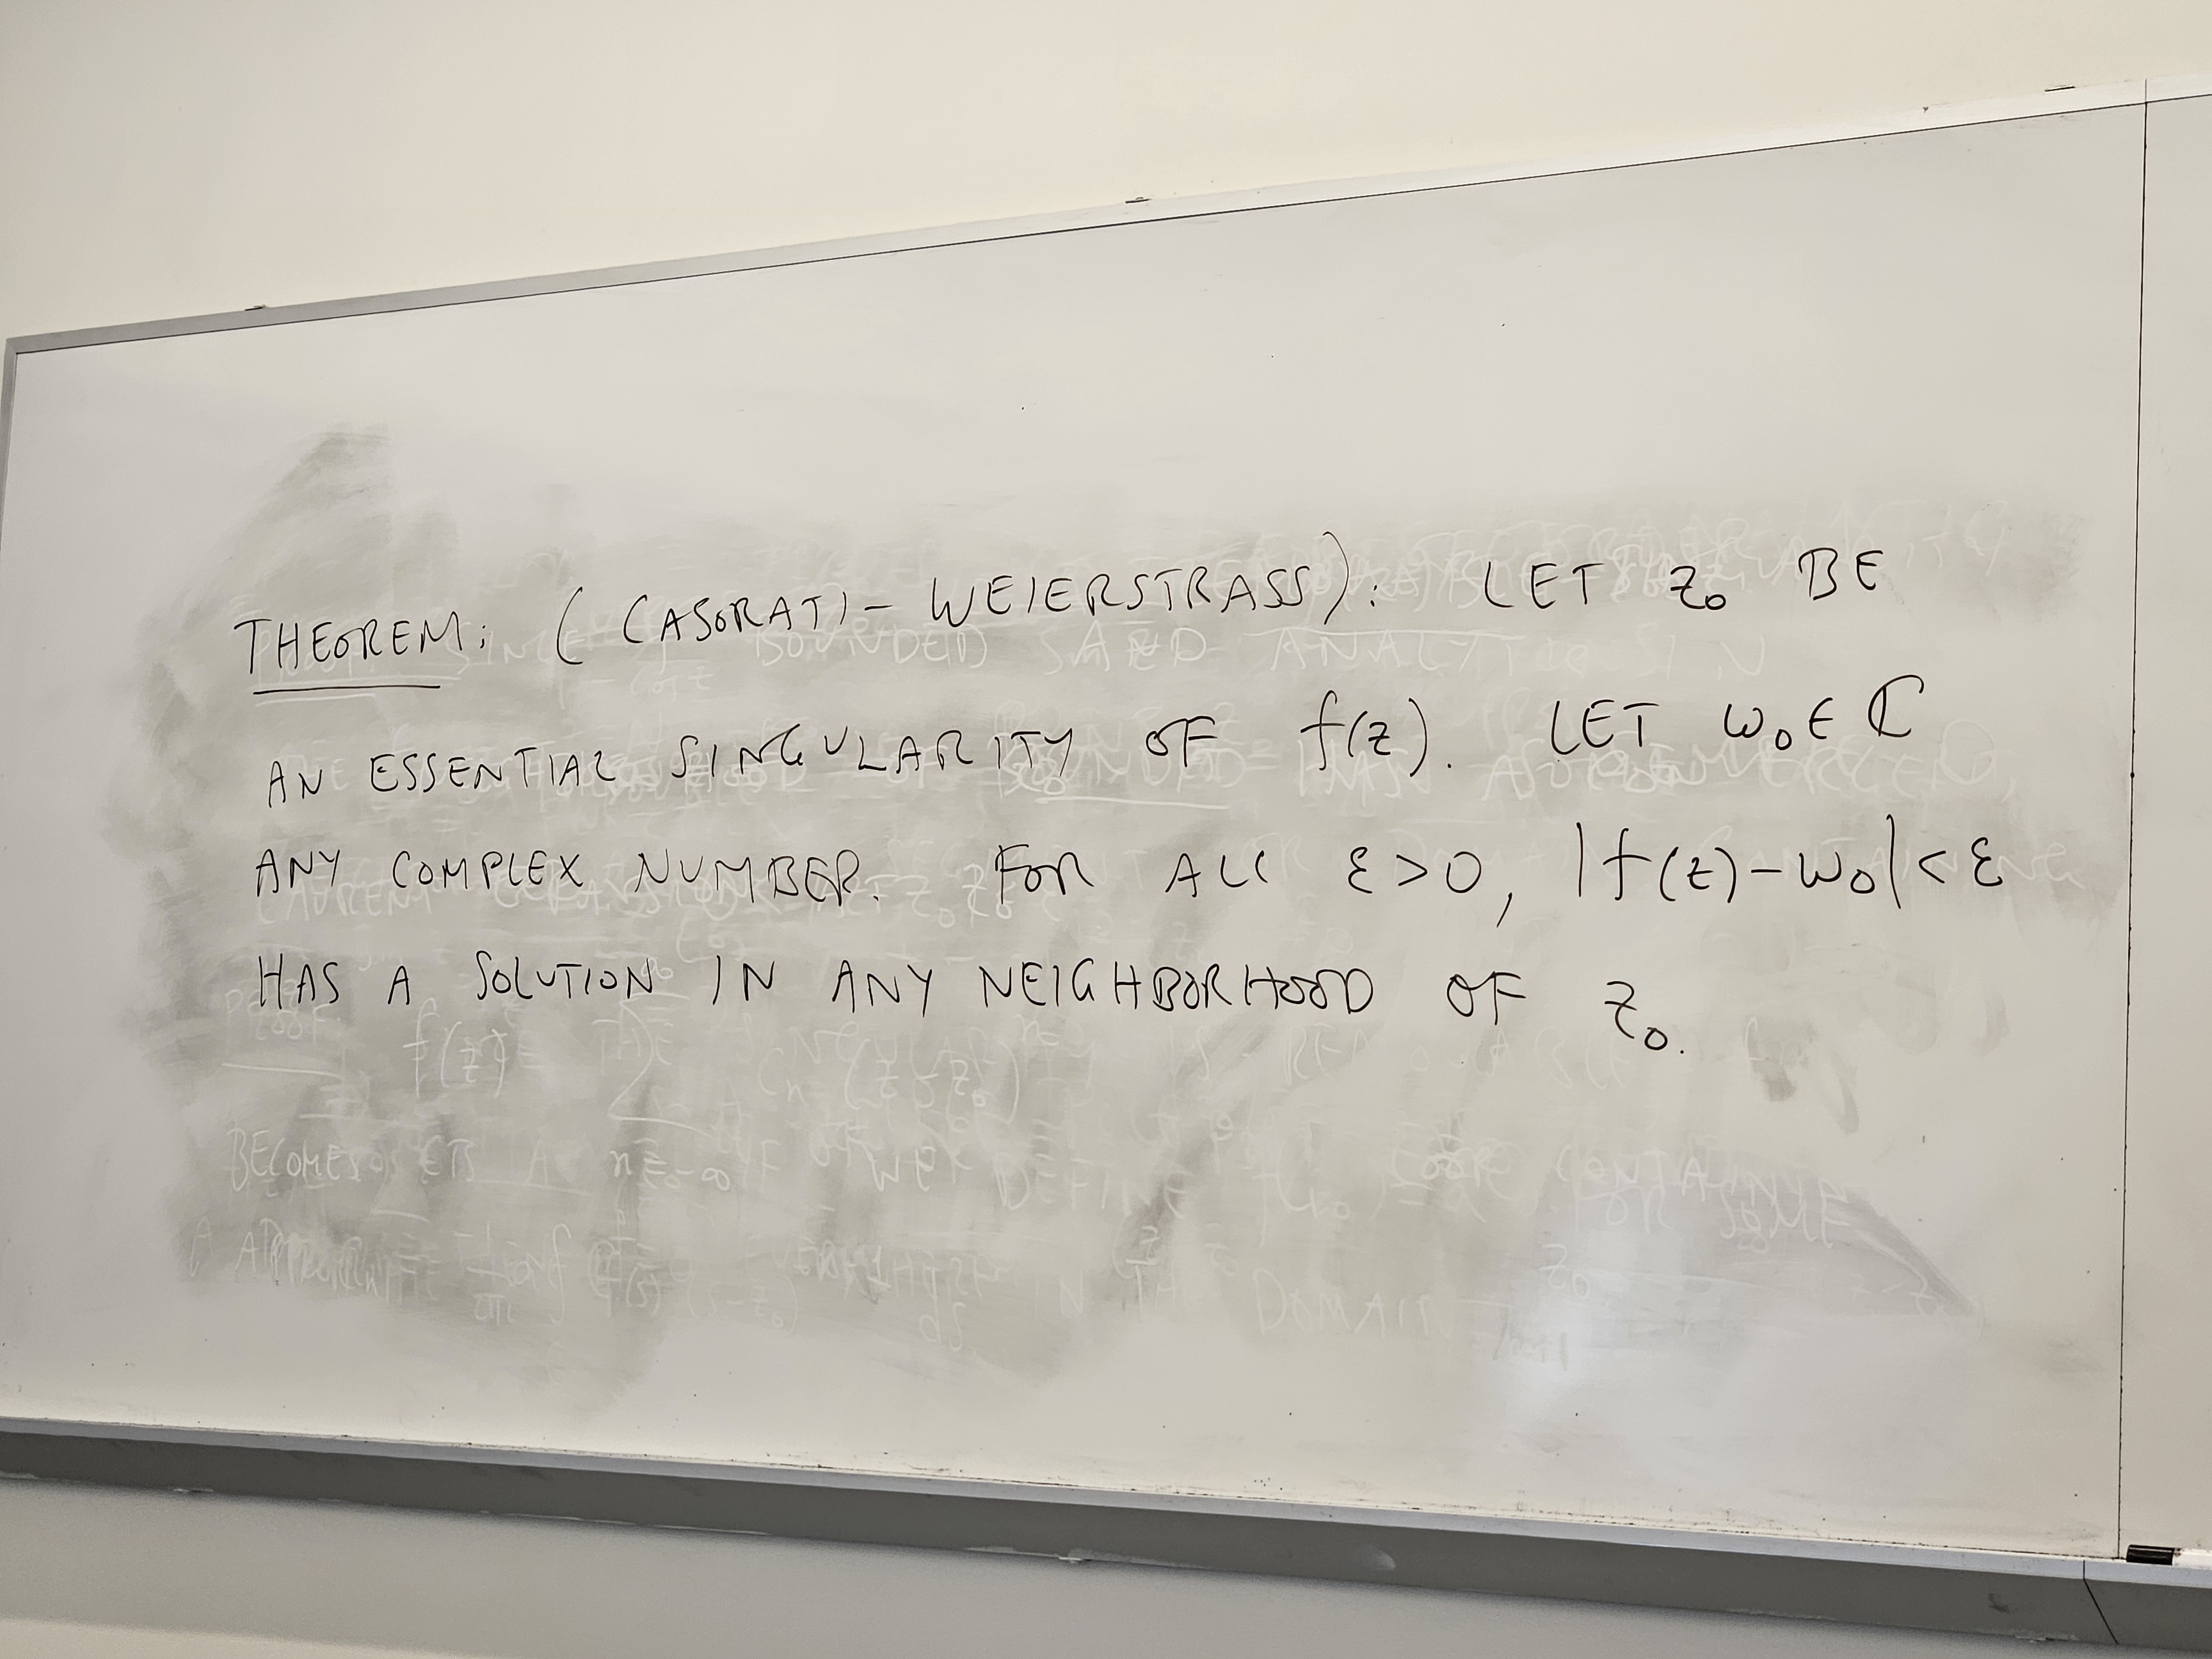 THEOREM: (CASORATI-WEIERSTRASS): LET z₀ BE
AN ESSENTIAL SINGULARITY OF f(z). LET ω₀ ∈ ℂ
ANY COMPLEX NUMBER. FOR ALL ε>0, |f(z)-ω₀|<ε
HAS A SOLUTION IN ANY NEIGHBORHOOD OF z₀.